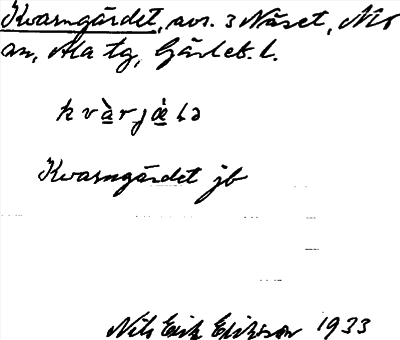 Kvarngärdet, avs. 3 Näset, Mo
sn, Ala tg, Gävleb. l.
kvàrjæ̀ɫə
Kvarngärdet jb
Nils Erik Eriksson 1933